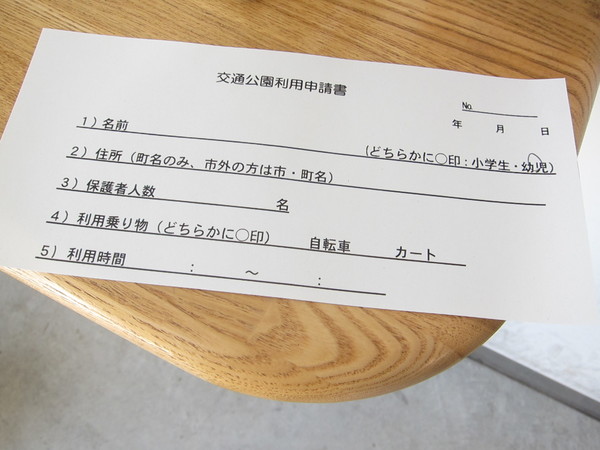 交通公園利用申請書
No.
年 月 日
1）名前 （どちらかに○印：小学生・幼児）
2）住所（町名のみ、市外の方は市・町名）
3）保護者人数 名
4）利用乗り物（どちらかに○印） 自転車 カート
5）利用時間 ： ～ ：